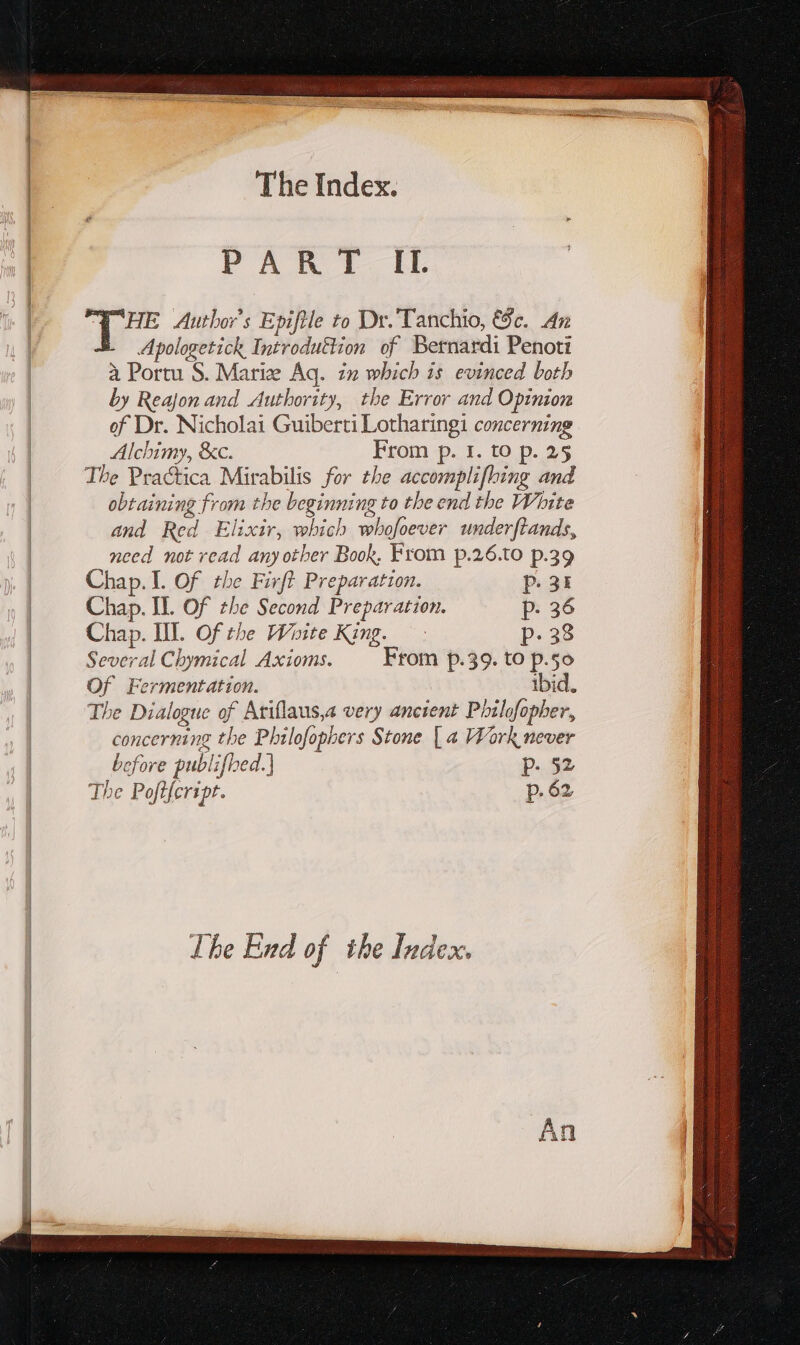 The Index.
PART II.
THE Author's Epiſtle to Dr. Tanchio, &c. An
Apologetick Introduction of Bernardi Penoti
à Portu S. Mariæ Aq. in which is evinced both
by Reaſon and Authority, the Error and Opinion
of Dr. Nicholai Guiberti Lotharingi concerning
Alchimy, &c. From p. 1. to p. 25
The Practica Mirabilis for the accompliſhing and
obtaining from the beginning to the end the White
and Red Elixir, which whoſoever underſtands,
need not read any other Book. From p.26.to p.39
Chap. I. Of the Firſt Preparation. p. 31
Chap. II. Of the Second Preparation. p. 36
Chap. III. Of the White King. p. 38
Several Chymical Axioms. From p.39. to p.50
Of Fermentation. ibid.
The Dialogue of Ariſlaus,a very ancient Philoſopher,
concerning the Philoſophers Stone [a Work never
before publiſhed.] p. 52
The Poſtſcript. p. 62
The End of the Index.
An